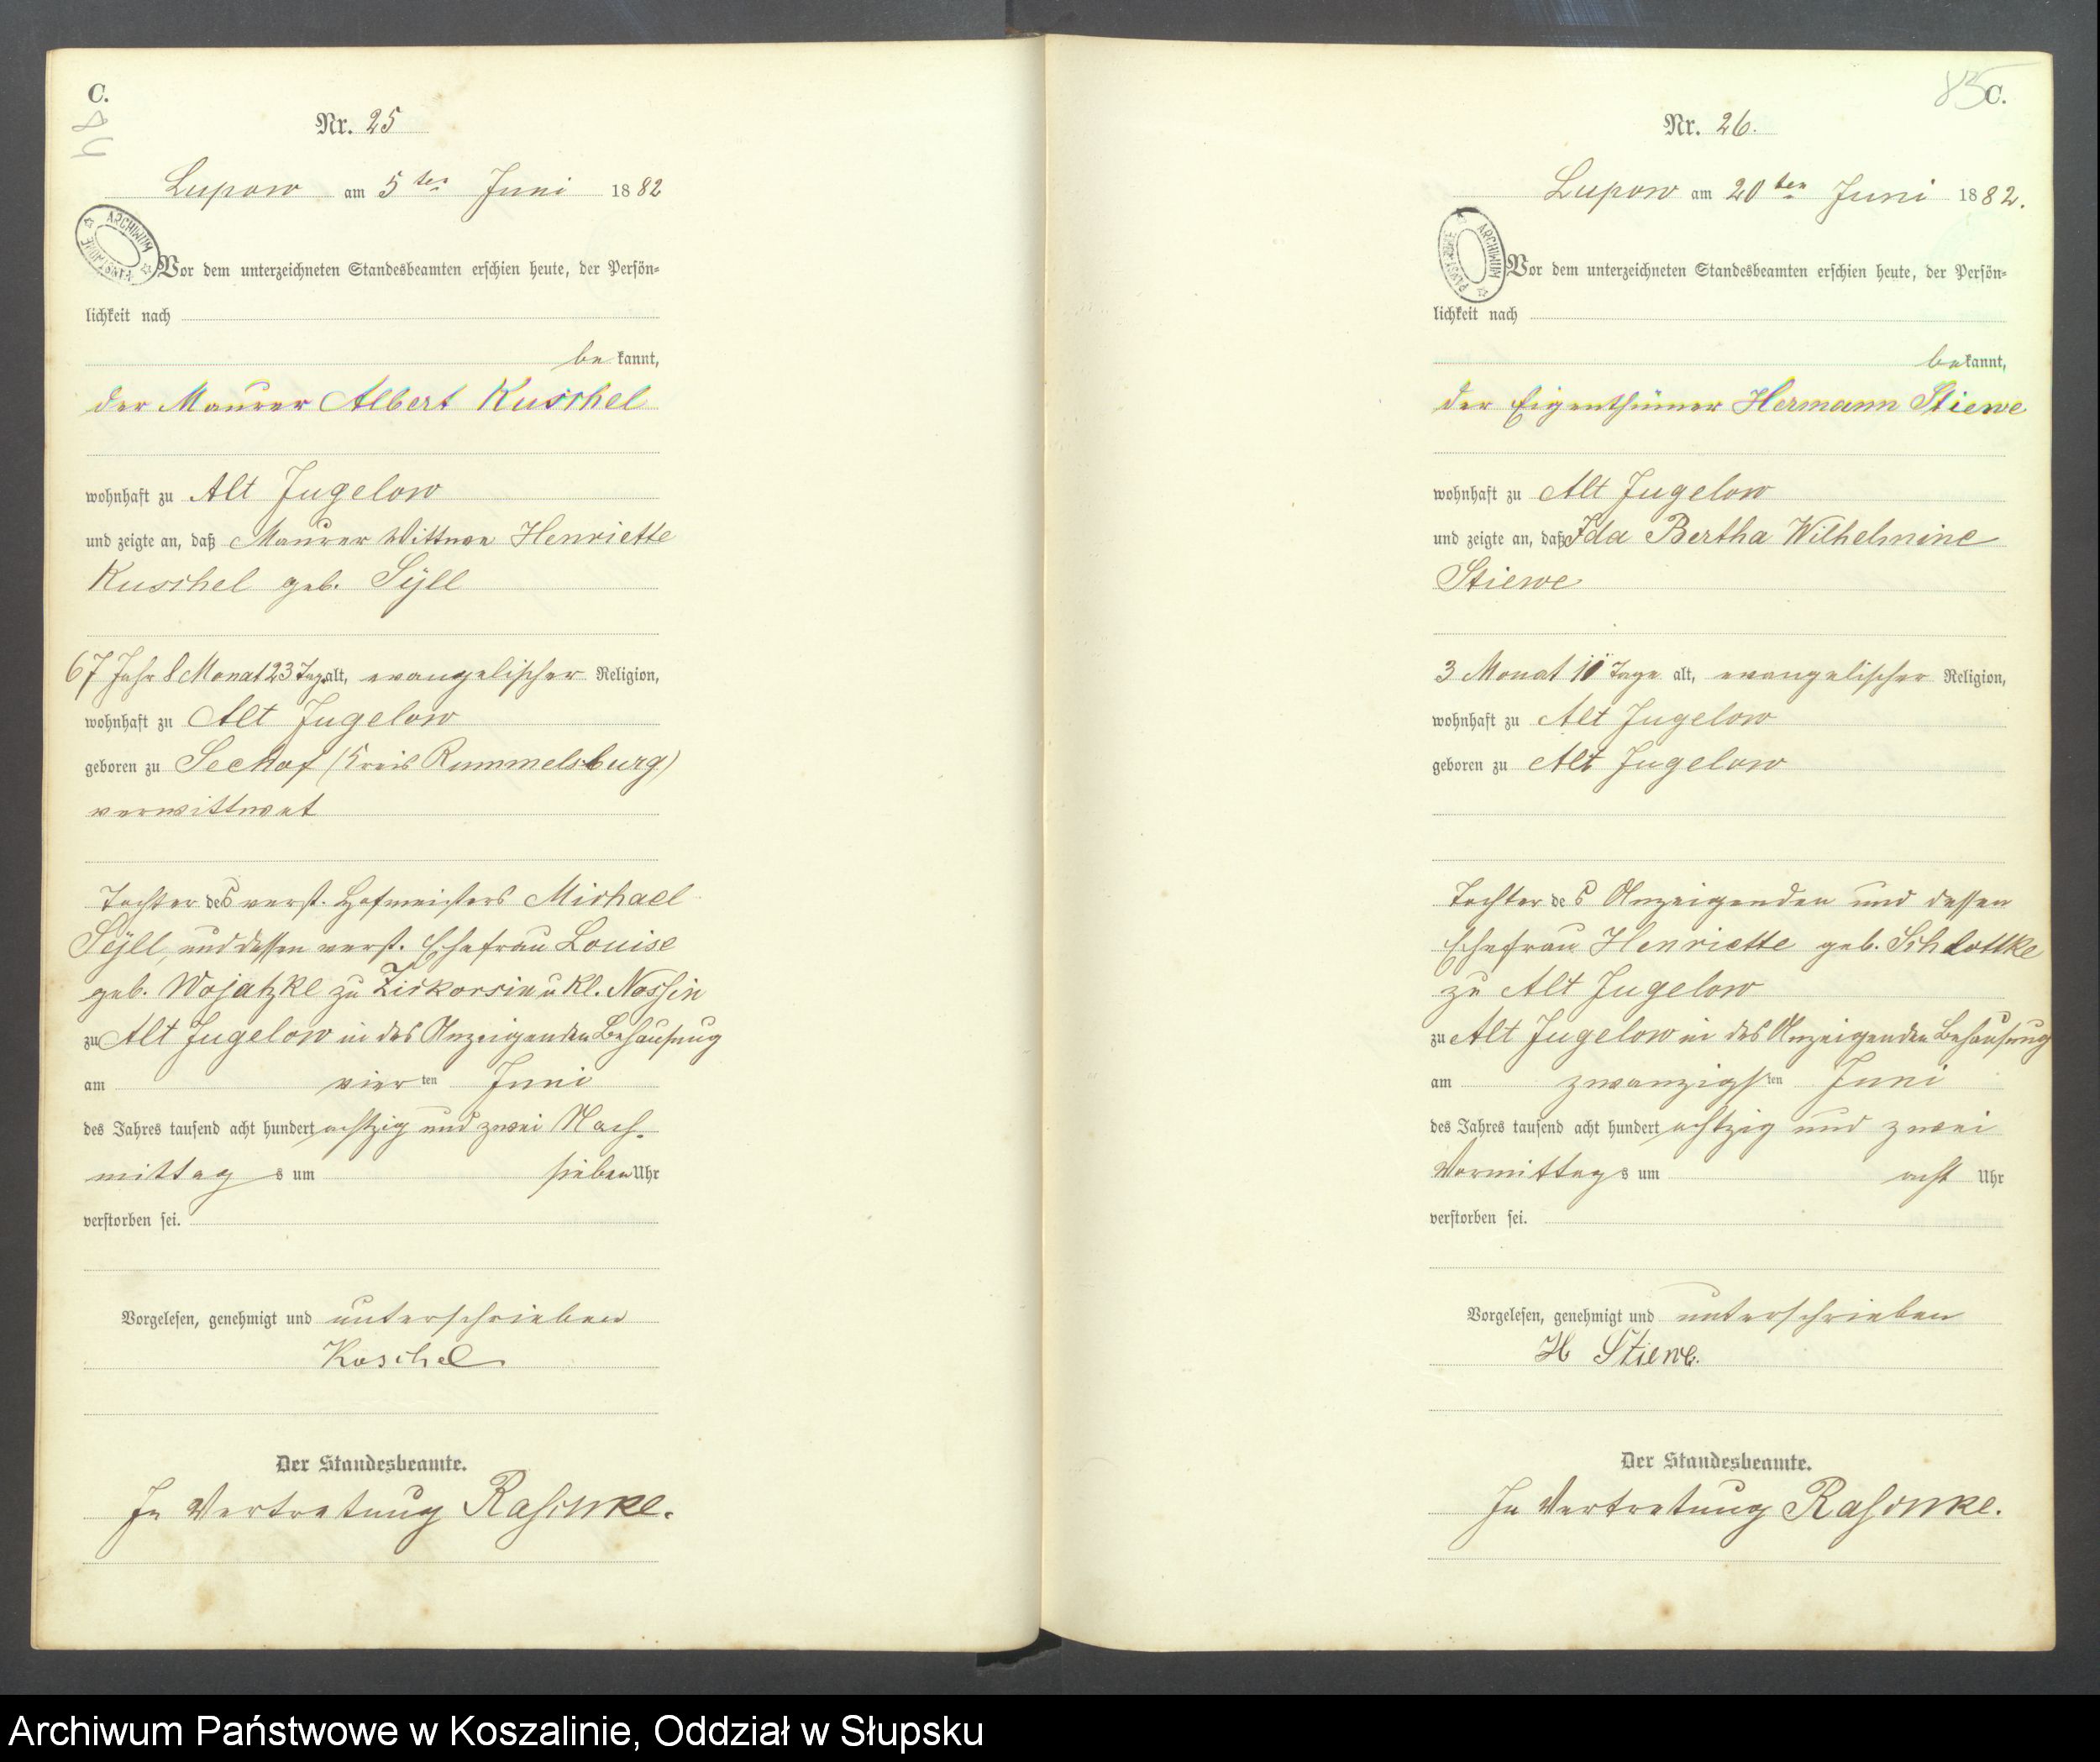 C.
84
Nr. 25
Lupow am 5ten Juni 1882
ARCHIWUM PAŃSTWOWE
Vor dem unterzeichneten Standesbeamten erschien heute, der Persön=
lichkeit nach
be kannt,
der Maurer Albert Kuschel
wohnhaft zu Alt Jugelow
und zeigte an, daß Maurer Wittwe Henriette
Kuschel geb. Syll
67 Jahr 8 Monat 23 Tag alt, evangelischer Religion,
wohnhaft zu Alt Jugelow
geboren zu Seehof (Kreis Rummelsburg)
verwittwet
Tochter des verst. Hofmeisters Michael
Syll, und dessen verst. Ehefrau Louise
geb. Wojatzke zu Zirkorsin u Kl. Nossin
zu Alt Jugelow in des Anzeigenden Behausung
am vierten Juni
des Jahres tausend acht hundert achtzig und zwei Nach-
mittags um sieben Uhr
verstorben sei.
Vorgelesen, genehmigt und unterschrieben
Kuschel
Der Standesbeamte.
In Vertretung Raschke.
85
C.
Nr. 26.
Lupow am 20ten Juni 1882.
ARCHIWUM PAŃSTWOWE
Vor dem unterzeichneten Standesbeamten erschien heute, der Persön=
lichkeit nach
bekannt,
der Eigenthümer Hermann Stiewe
wohnhaft zu Alt Jugelow
und zeigte an, daß Ida Bertha Wilhelmine
Stiewe
3 Monat 10 Tage alt, evangelischer Religion,
wohnhaft zu Alt Jugelow
geboren zu Alt Jugelow
Tochter des Anzeigenden und dessen
Ehefrau Henriette geb. Schlottke
zu Alt Jugelow
zu Alt Jugelow in des Anzeigenden Behausung
am zwanzigsten Juni
des Jahres tausend acht hundert achtzig und zwei
Vormittags um acht Uhr
verstorben sei.
Vorgelesen, genehmigt und unterschrieben
H Stiewe.
Der Standesbeamte.
In Vertretung Raschke.
Archiwum Państwowe w Koszalinie, Oddział w Słupsku